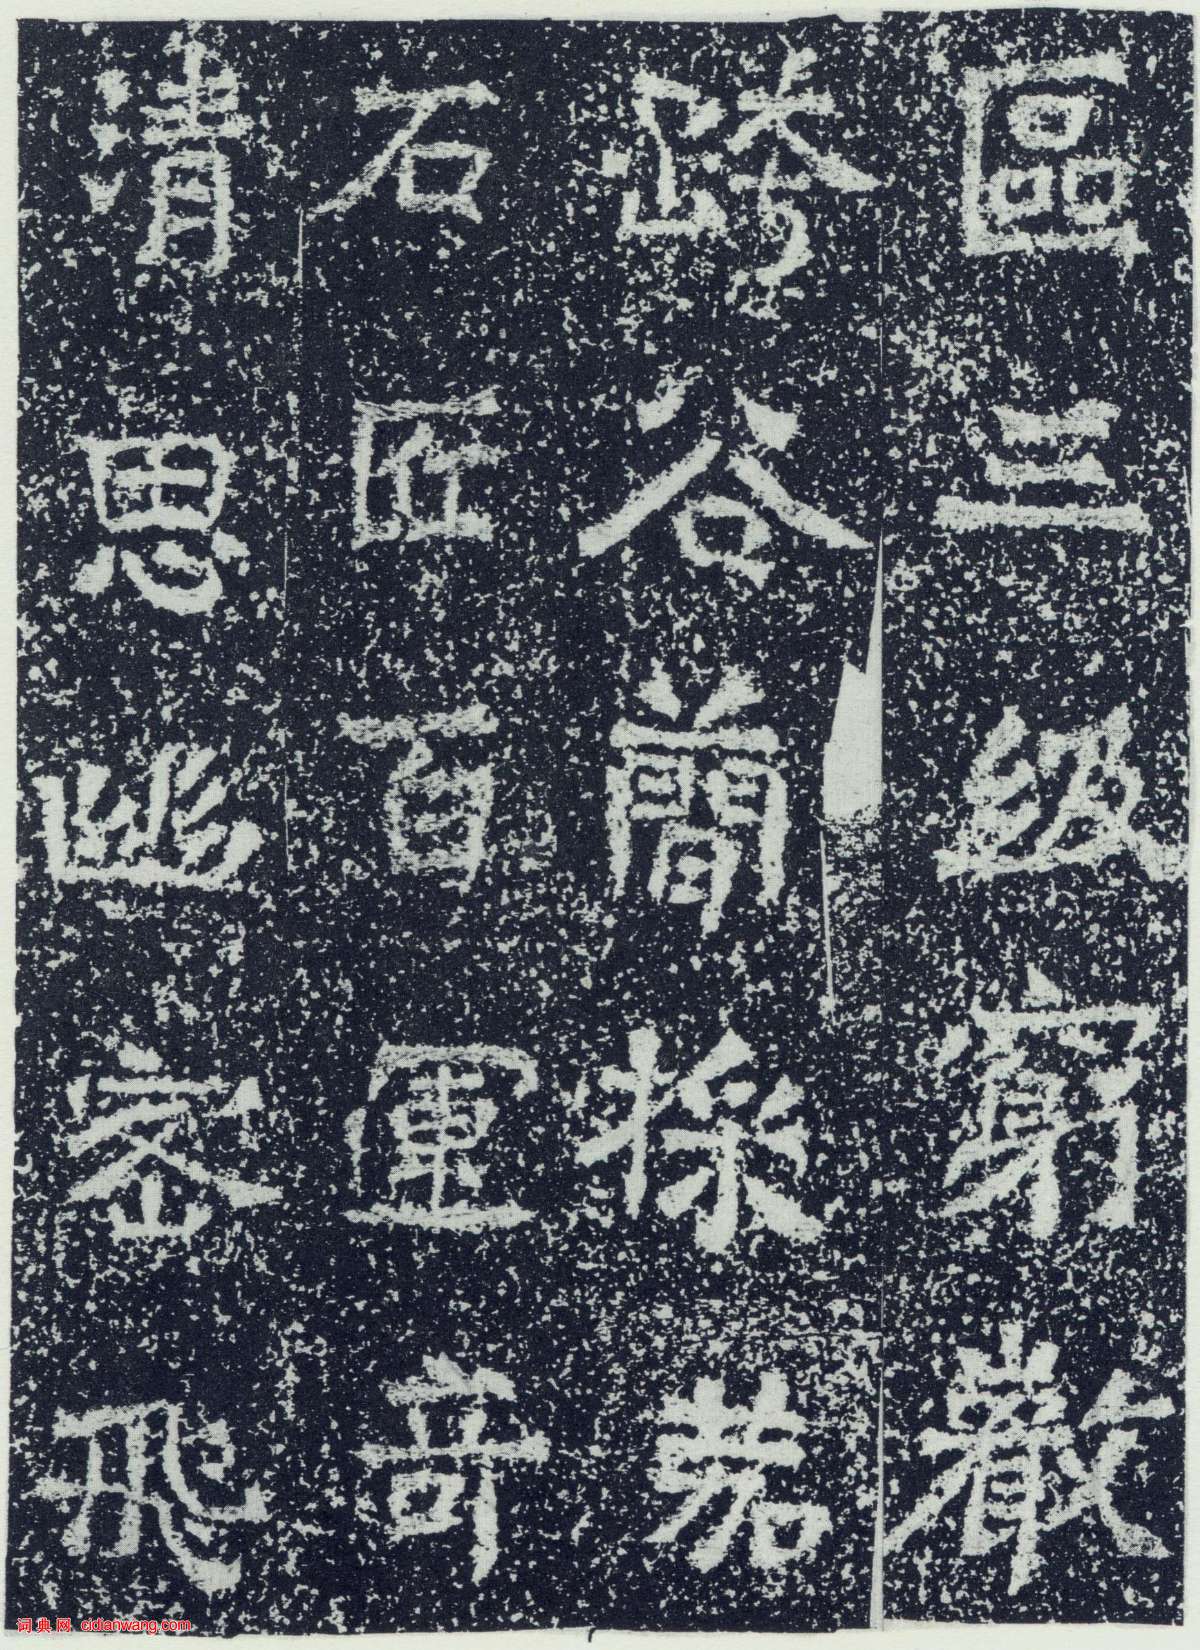 區三級穿嚴
跨谷簡採嘉
石匠百運奇
清思幽密飛
词典网 cidianwang.com